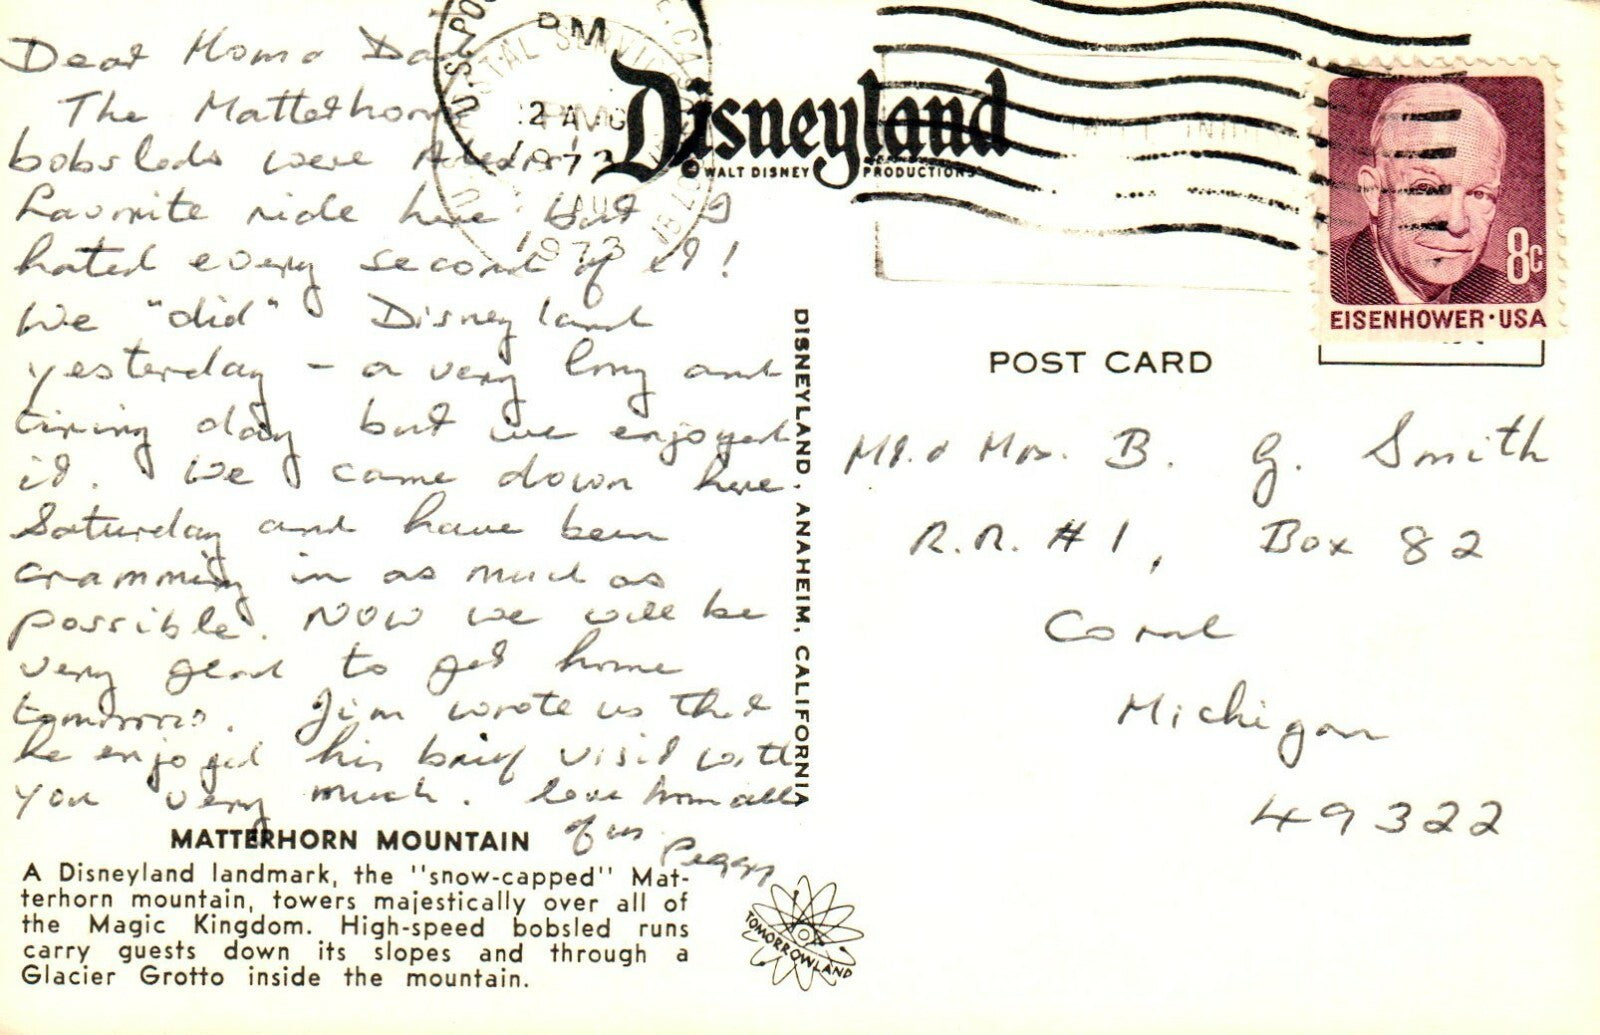 Dear Mom & Dad
The Matterhorn
bobsleds were
favorite ride here but I
hated every second of it!
We "did" Disneyland
yesterday – a very long and
tiring day but we enjoyed
it. We came down here
Saturday and have been
cramming in as much as
possible. Now we will be
very glad to get home
tomorrow. Jim wrote us that
he enjoyed his brief visit with
you very much. Love from all
of us.
Peggy
MATTERHORN MOUNTAIN
A Disneyland landmark, the "snow-capped" Mat-
terhorn mountain, towers majestically over all of
the Magic Kingdom. High-speed bobsled runs
carry guests down its slopes and through a
Glacier Grotto inside the mountain.
TOMORROWLAND
DISNEYLAND, ANAHEIM, CALIFORNIA
PM
2 AUG
1973
U.S. POSTAL SERVICE, CA
PM
AUG
1973
Disneyland
© WALT DISNEY PRODUCTIONS
8c
EISENHOWER · USA
POST CARD
Mr. & Mrs. B. G. Smith
R.R. #1, Box 82
Coral
Michigan
49322